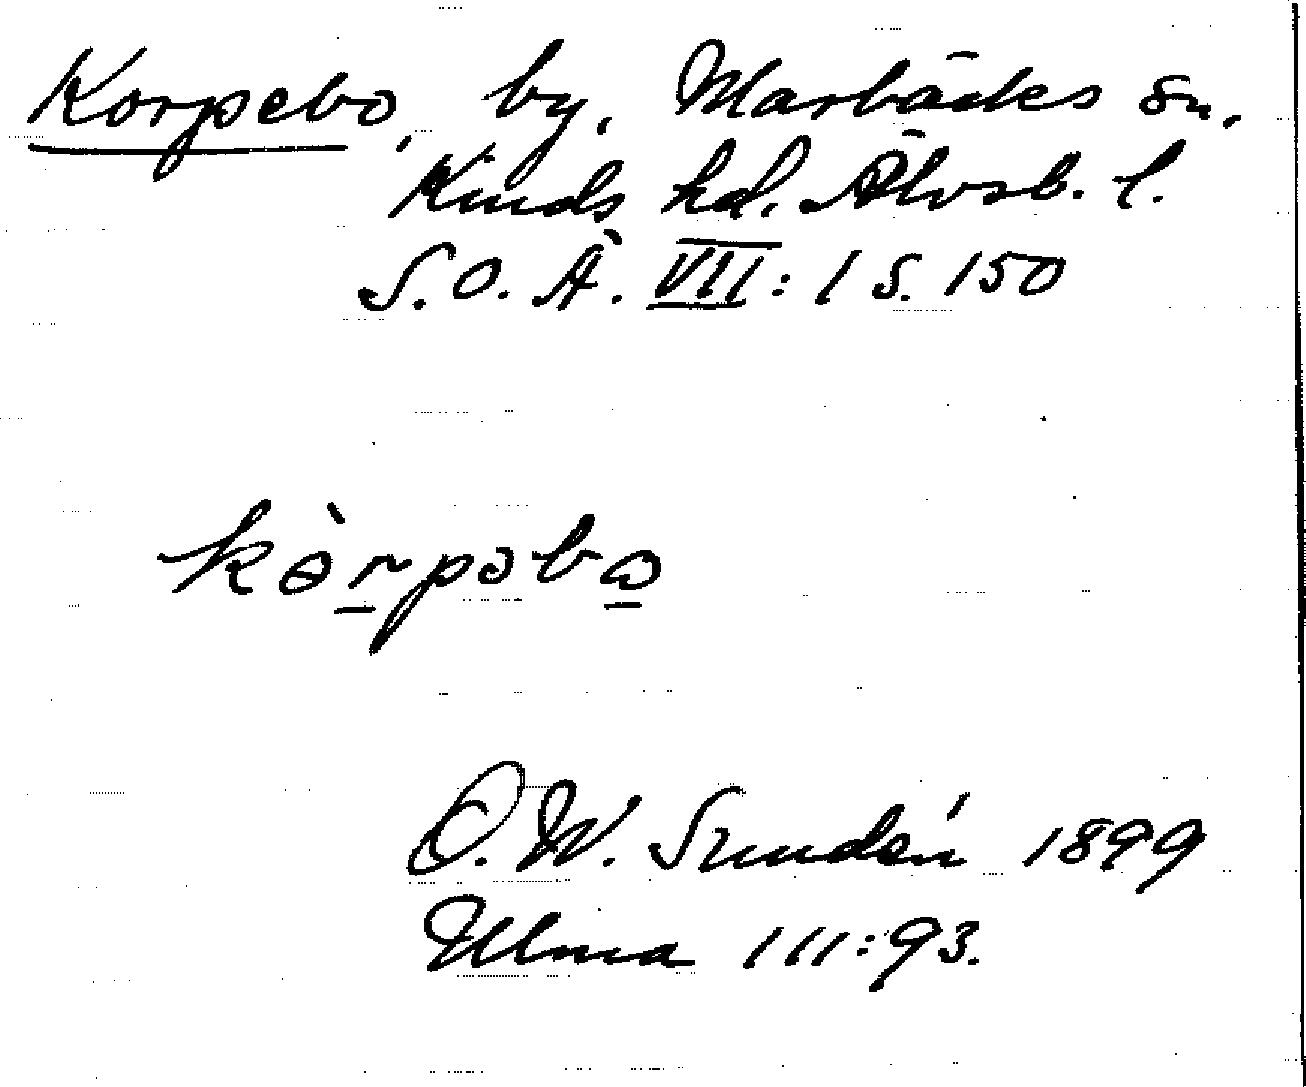 Korpebo, by, Marbäcks sn.
Kinds hd. Älvsb. l.
S. O. Ä. VII: 1 s. 150
kɵ̀rpəbo
D. W. Sundén 1899
Ulma 111:93.